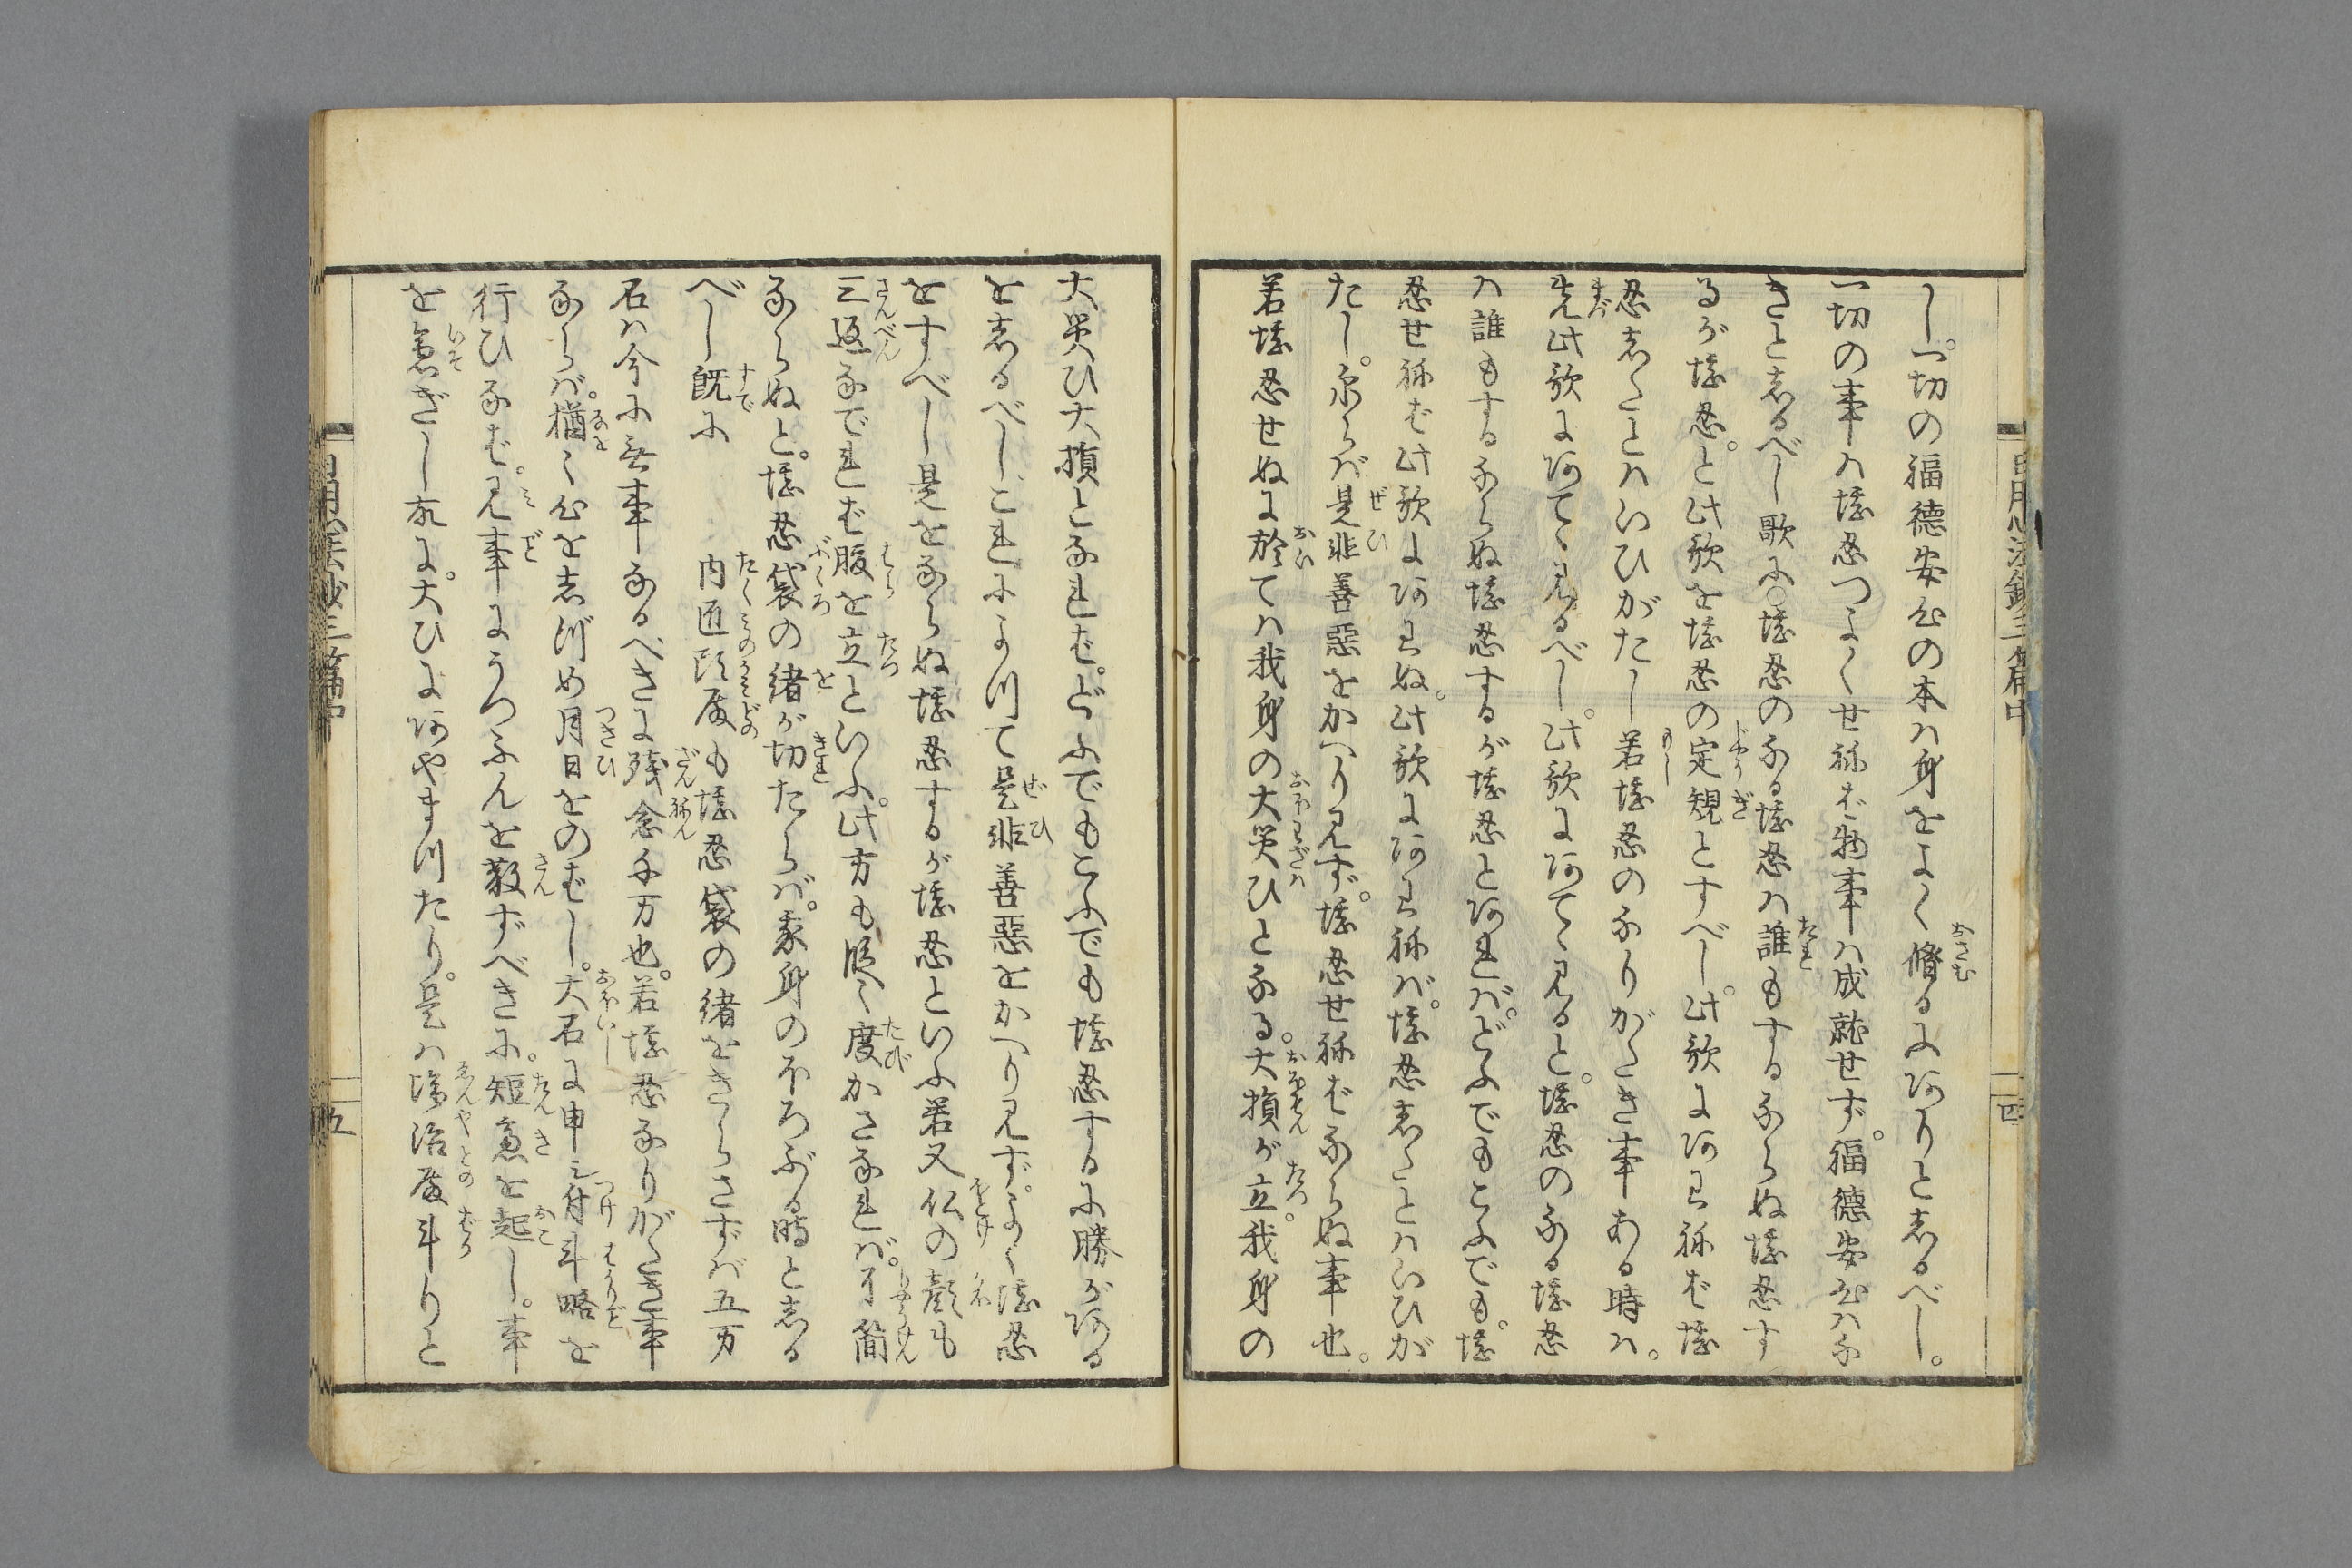 し。一切の福德安心の本ハ身をよく脩るにありと志るべし。
一切の事ハ堪忍つよくせねば物事ハ成就せず。福德安心ハな
きと志るべし歌に〇堪忍のなる堪忍ハ誰もするならぬ堪忍す
るが堪忍。と此歌を堪忍の定規とすべし。此歌にあハねば堪
忍志たとハいひがたし若堪忍のなりがたき事ある時ハ。
先此歌にあてゝ見るべし。此歌にあてゝ見ると。堪忍のなる堪忍
ハ誰もするならぬ堪忍するが堪忍とあれバ。どふでもこふでも。堪
忍せねば此歌にあハぬ。此歌にあハねバ。堪忍志たとハいひが
たし。尓らバ是非善惡をかへり見ず。堪忍せねばならぬ事也。
若堪忍せぬに於てハ我身の大災ひとなる。大損が立。我身の
大災ひ大損となれば。どふでもこふでも堪忍するに勝がある
を志るべしこれによつて是非善惡をかへり見ず。よく堪忍
をすべし是をならぬ堪忍するが堪忍といふ若又仏の顔も
三返なでれば腹を立といふ。此方も段〻度かさなれバ。了簡
ならぬと。堪忍袋の緒が切たらバ。我身のほろぶる時と志る
べし既に　内匠頭殿も堪忍袋の緒をきらさずバ五万
石ハ今に無事なるべきに殘念千万也。若堪忍なりがたき事
ならバ。猶〻心を志づめ月日をのばし。大石に申し付斗略を
行ひなば。見事にうつふんを散ずべきに。短慮を起し。事
を急ぎし故に。大ひにあやまつたり。是ハ塩治殿斗りと
日用心法鈔三篇中
四
五